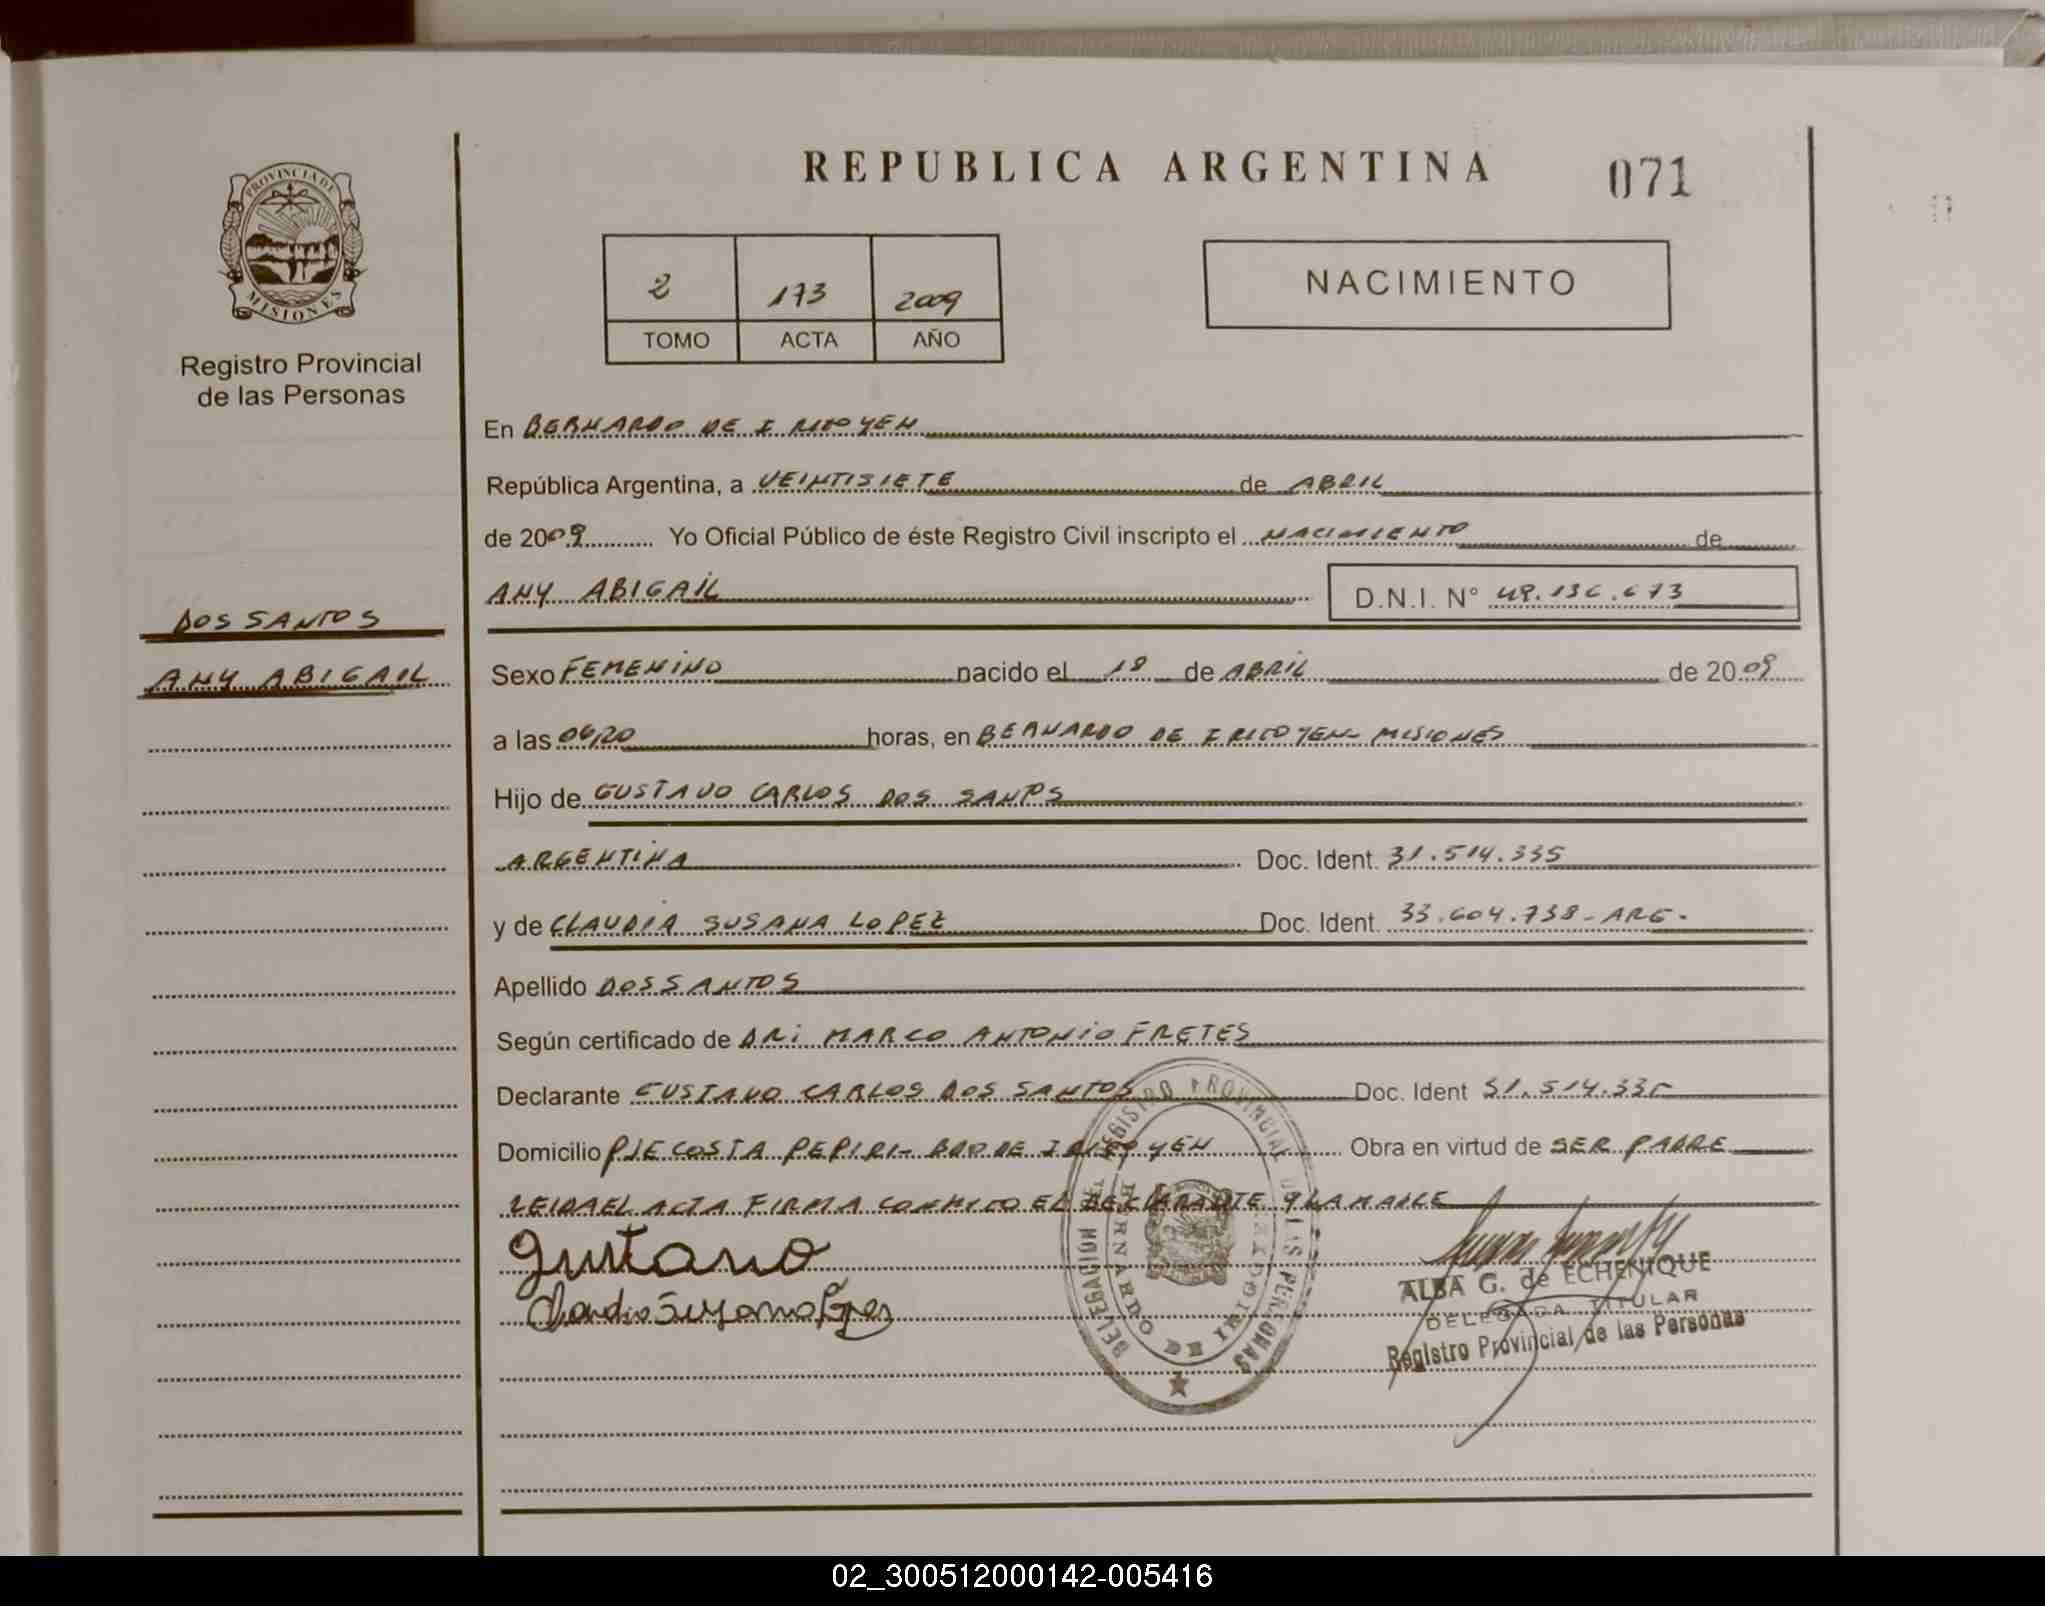 REPUBLICA ARGENTINA
071
PROVINCIA DE
MISIONES
Registro Provincial
de las Personas
2 173 2009
TOMO ACTA AÑO
NACIMIENTO
En BERNARDO DE IRIGOYEN
República Argentina, a VEINTISIETE de ABRIL
de 2009 Yo Oficial Público de éste Registro Civil inscripto el NACIMIENTO de
ANY ABIGAIL D.N.I. N° 49.136.673
DOS SANTOS
ANY ABIGAIL
Sexo FEMENINO nacido el 18 de ABRIL de 2009
a las 06,20 horas, en BERNARDO DE IRIGOYEN- MISIONES
Hijo de GUSTAVO CARLOS DOS SANTOS
ARGENTINA Doc. Ident. 31.514.335
y de CLAUDIA SUSANA LOPEZ Doc. Ident. 33.604.738- ARG-
Apellido DOS SANTOS
Según certificado de DR: MARCO ANTONIO FRETES
Declarante GUSTAVO CARLOS DOS SANTOS Doc. Ident 31.514.335
Domicilio PJE COSTA PEPIRI- BDO DE IRIGOYEN Obra en virtud de SER PADRE
LEIDA EL ACTA FIRMA CONMIGO EL DECLARANTE Y LA MADRE
Gustavo
Claudia Susana Lopez
DELEGACION DEL REGISTRO PROVINCIAL DE LAS PERSONAS
BERNARDO DE IRIGOYEN
ALBA G. de ECHENIQUE
DELEGADA TITULAR
Registro Provincial de las Personas
02_300512000142-005416